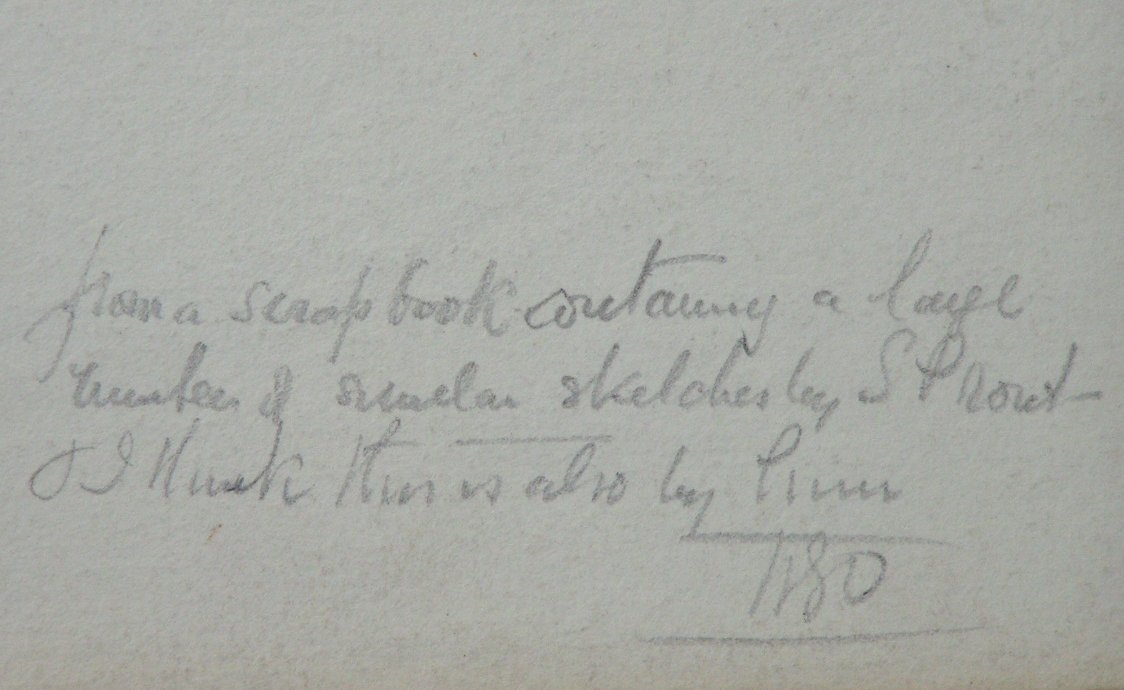 from a scrapbook containing a large
number of similar sketches by S Prout
& I think this is also by him